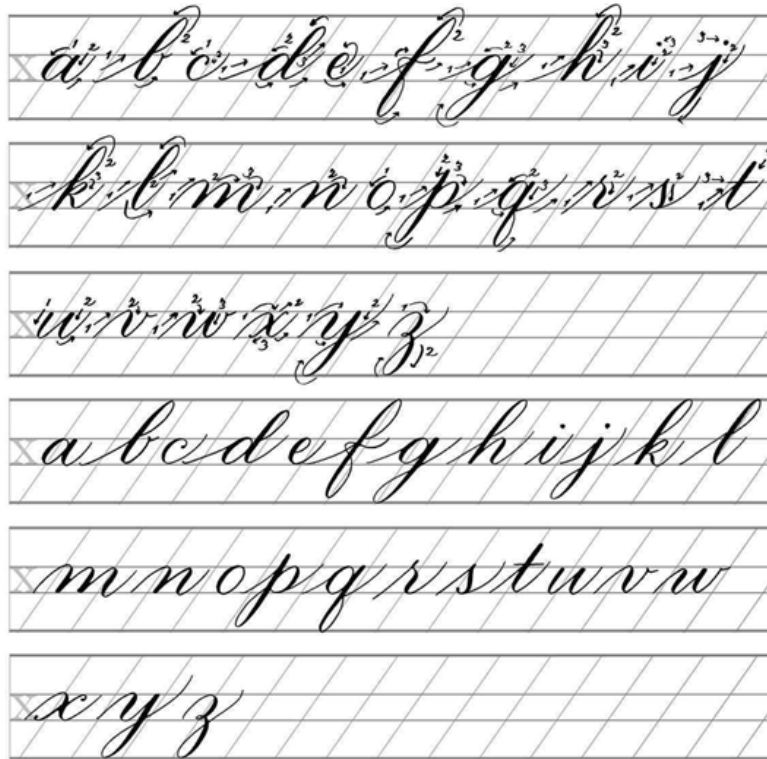 x a b c d e f g h i j
x k l m n o p q r s t
x u v w x y z
x a b c d e f g h i j k l
x m n o p q r s t u v w
x x y z